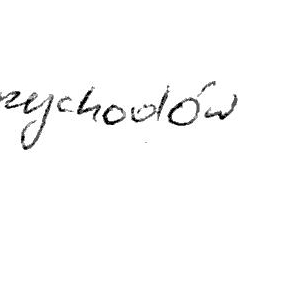 zychodów